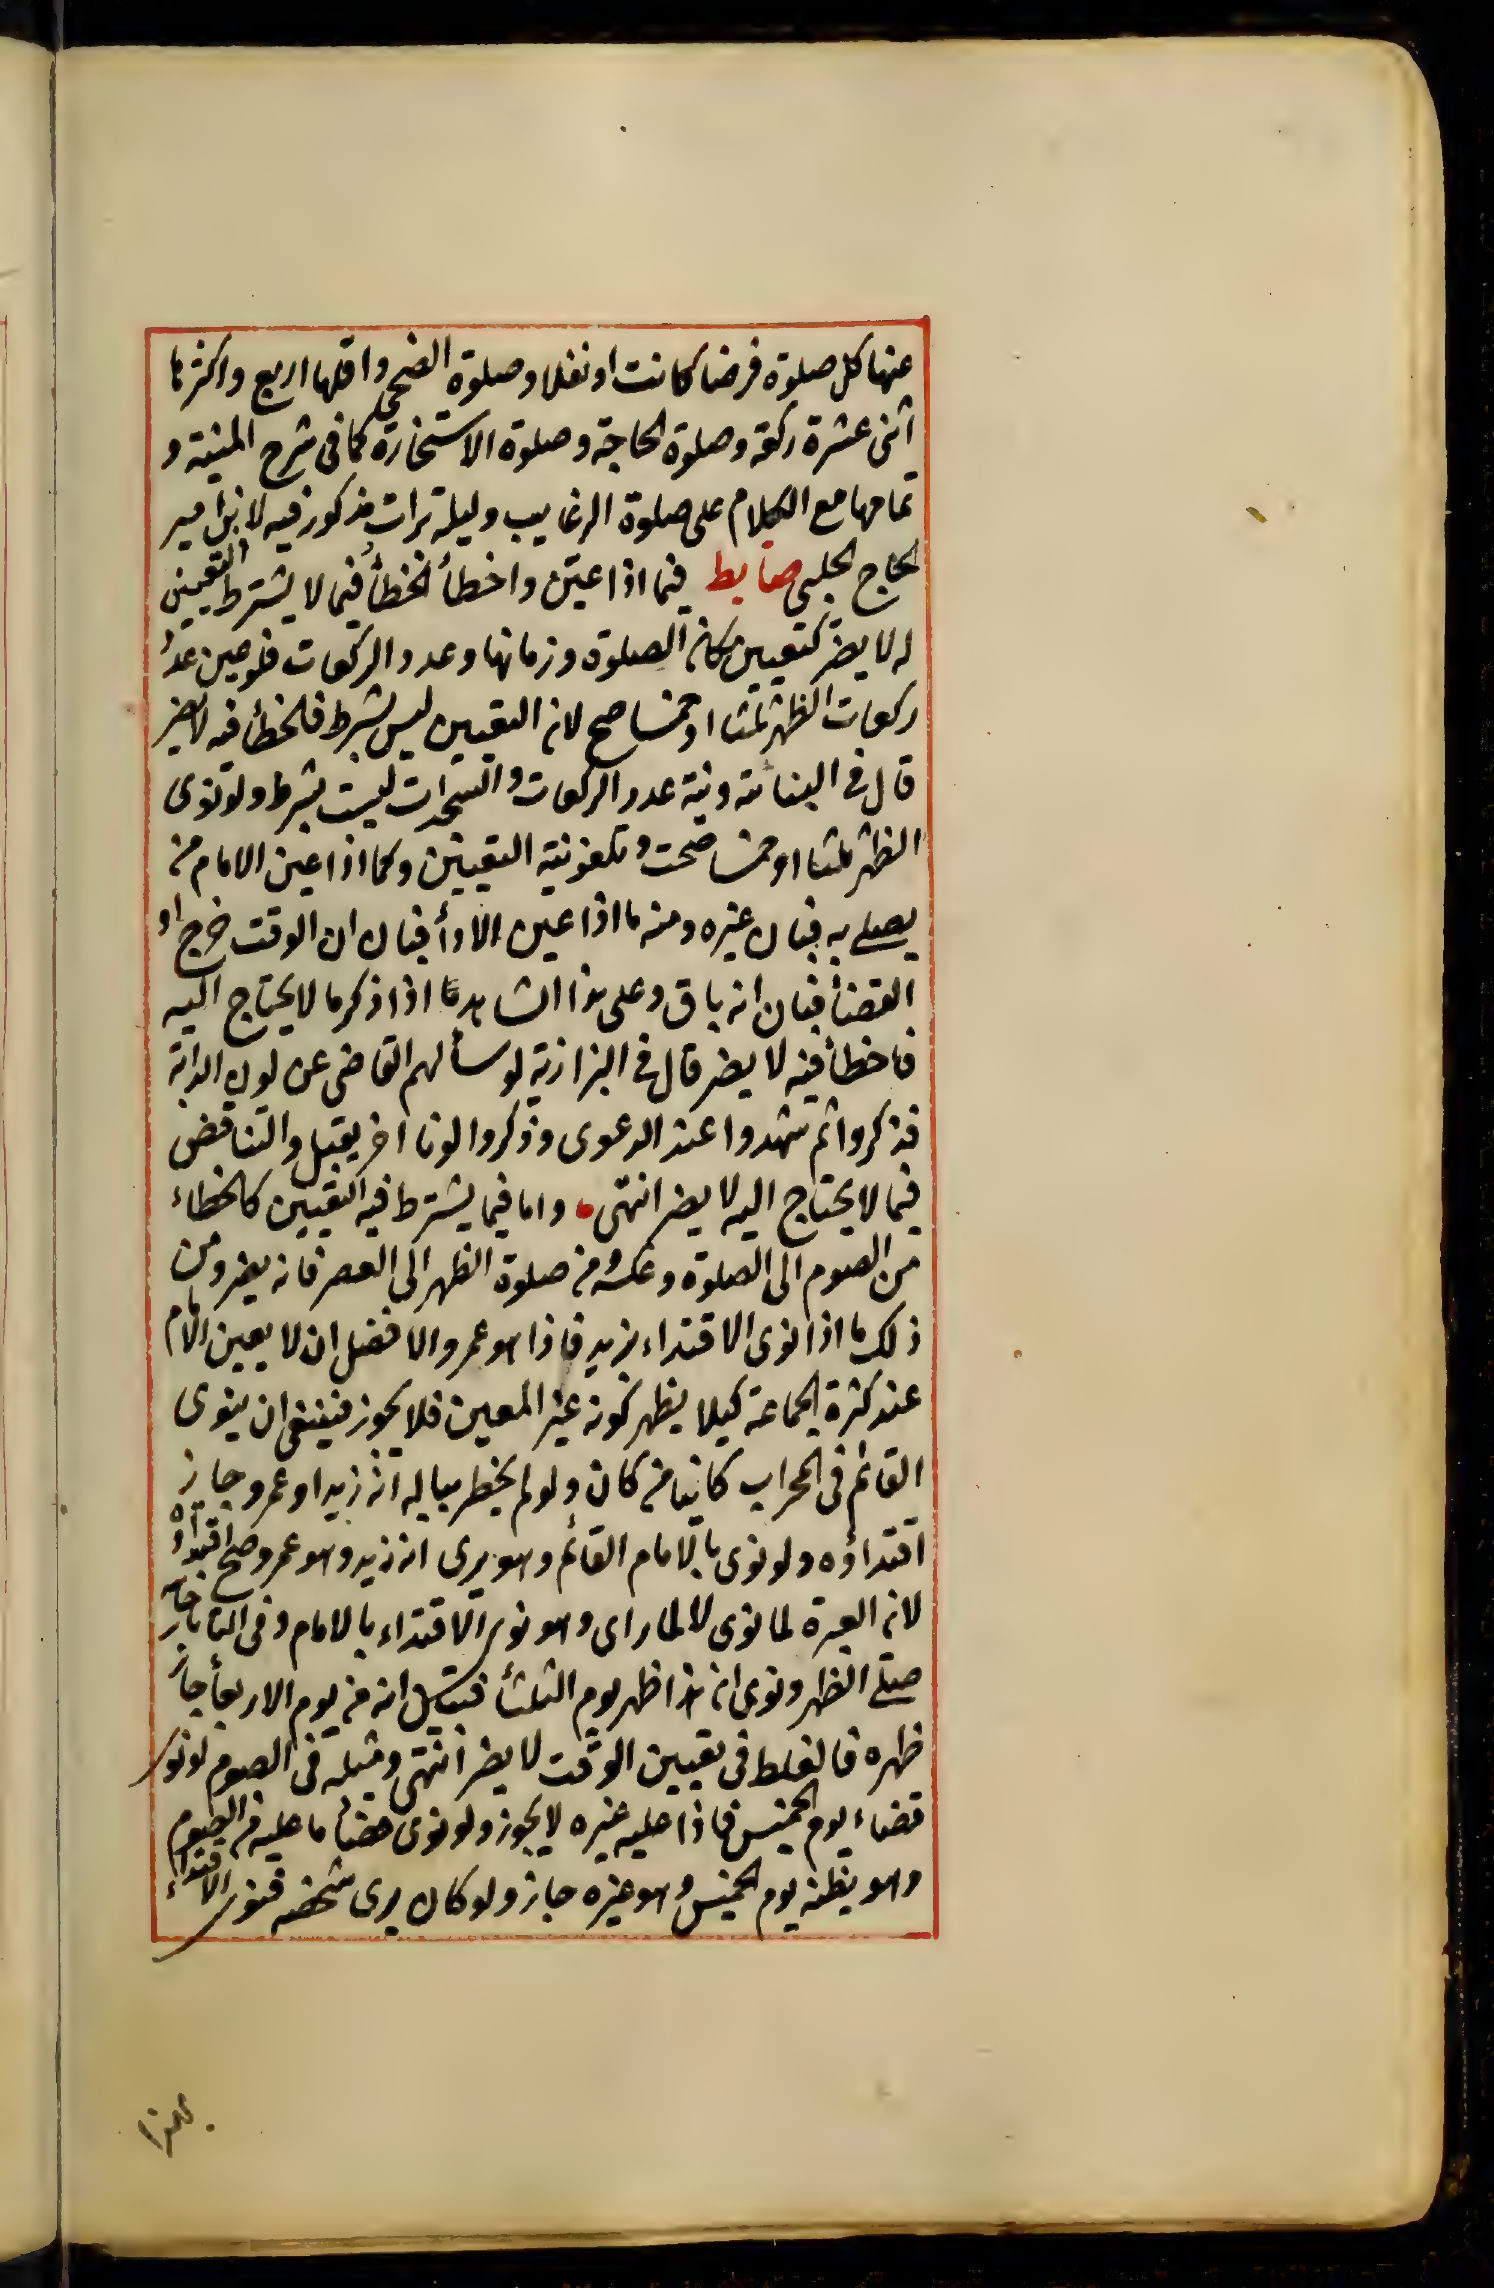 عنها كل صلوة فرضا كانت او نفلا وصلوة الضحى واقلها اربع واكثرها
اثنى عشرة ركعة وصلوة الحاجة وصلوة الاستخارة كما فى شرح المنية و
تمامها مع الكلام على صلوة الرغايب وليلة برات مذكور فيه لابن امير
الحاج الحلبى ضابط فيما اذا عين واخطأ الخطأ فيما لا يشترط التعيين
له لا يضر كتعيين مكان الصلوة وزمانها وعدد الركعات فلو عين عدد
ركعات الظهر ثلثا او خمسا صح لان التعيين ليس بشرط فالخطأ فيه لا يضر
قال فى البناية ونية عدد الركعات والسجدات ليست بشرط ولو نوى
الظهر ثلثا او خمسا صحت وتلغو نية التعيين وكما اذا عين الامام من
يصلى به فبان غيره ومنه ما اذا عين الادأ فبان ان الوقت خرج او
القضأ فبان انه باق وعلى هذا الشاهد اذا ذكر ما لا يحتاج اليه
فاخطأ فيه لا يضر قال فى البزازية لو سألهم القاضى عن لون الدابة
فذكروا ثم شهدوا عند الدعوى وذكروا لونا اخر يقبل والتناقض
فيما لا يحتاج اليه لا يضر انتهى واما فيما يشترط فيه التعيين كالخطاء
من الصوم الى الصلوة وعكسه ومن صلوة الظهر الى العصر فانه يضر ومن
ذلك ما اذا نوى الاقتداء بزيد فاذا هو عمرو والافضل ان لا يعين الامام
عند كثرة الجماعة كيلا يظهر كونه غير المعين فلا يجوز فينبغى ان ينوى
القائم فى المحراب كائنا من كان ولو لم يخطر بباله انه زيد او عمرو جاز
اقتداؤه ولو نوى بالامام القائم وهو يرى انه زيد وهو عمرو صح اقتداؤه
لان العبرة لما نوى لا لما راى وهو نوى الاقتداء بالامام وفى التاتارخانية
صلى الظهر ونوى ان هذا ظهر يوم الثلثأ فتبين انه من يوم الاربعأ جاز
ظهره فالغلط فى تعيين الوقت لا يضر انتهى ومثله فى الصوم لو نوى
قضاء يوم الخميس فاذا عليه غيره لا يجوز ولو نوى قضأ ما عليه من الصوم
وهو يظنه يوم الخميس وهو غيره جاز ولو كان يرى شخصه فنوى الاقتداء
بهذا